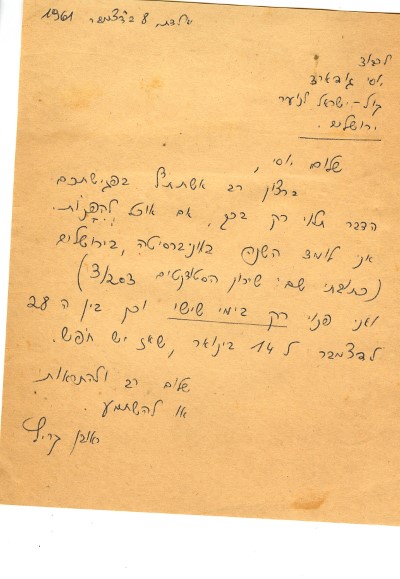 אילת, 8 בדצמבר 1961
לכבוד
יוסי גודארד
קול-ישראל לנוער
ירושלים.
שלום יוסי,
ברצון רב אשתתף בפגישתכם
הדבר תלוי רק בכך, אם אוכל להפנות.
אני לומד השנה באוניברסיטה, בירושלים
(כתובתי שם: שיכון הסטודנטים 203/ג)
ואני פנוי רק בימי שישי וכן בין ה 28
לדצמבר ל 14 בינואר, שאז יש חופש.
שלום רב ולהתראות
או להשתמע.
ראובן